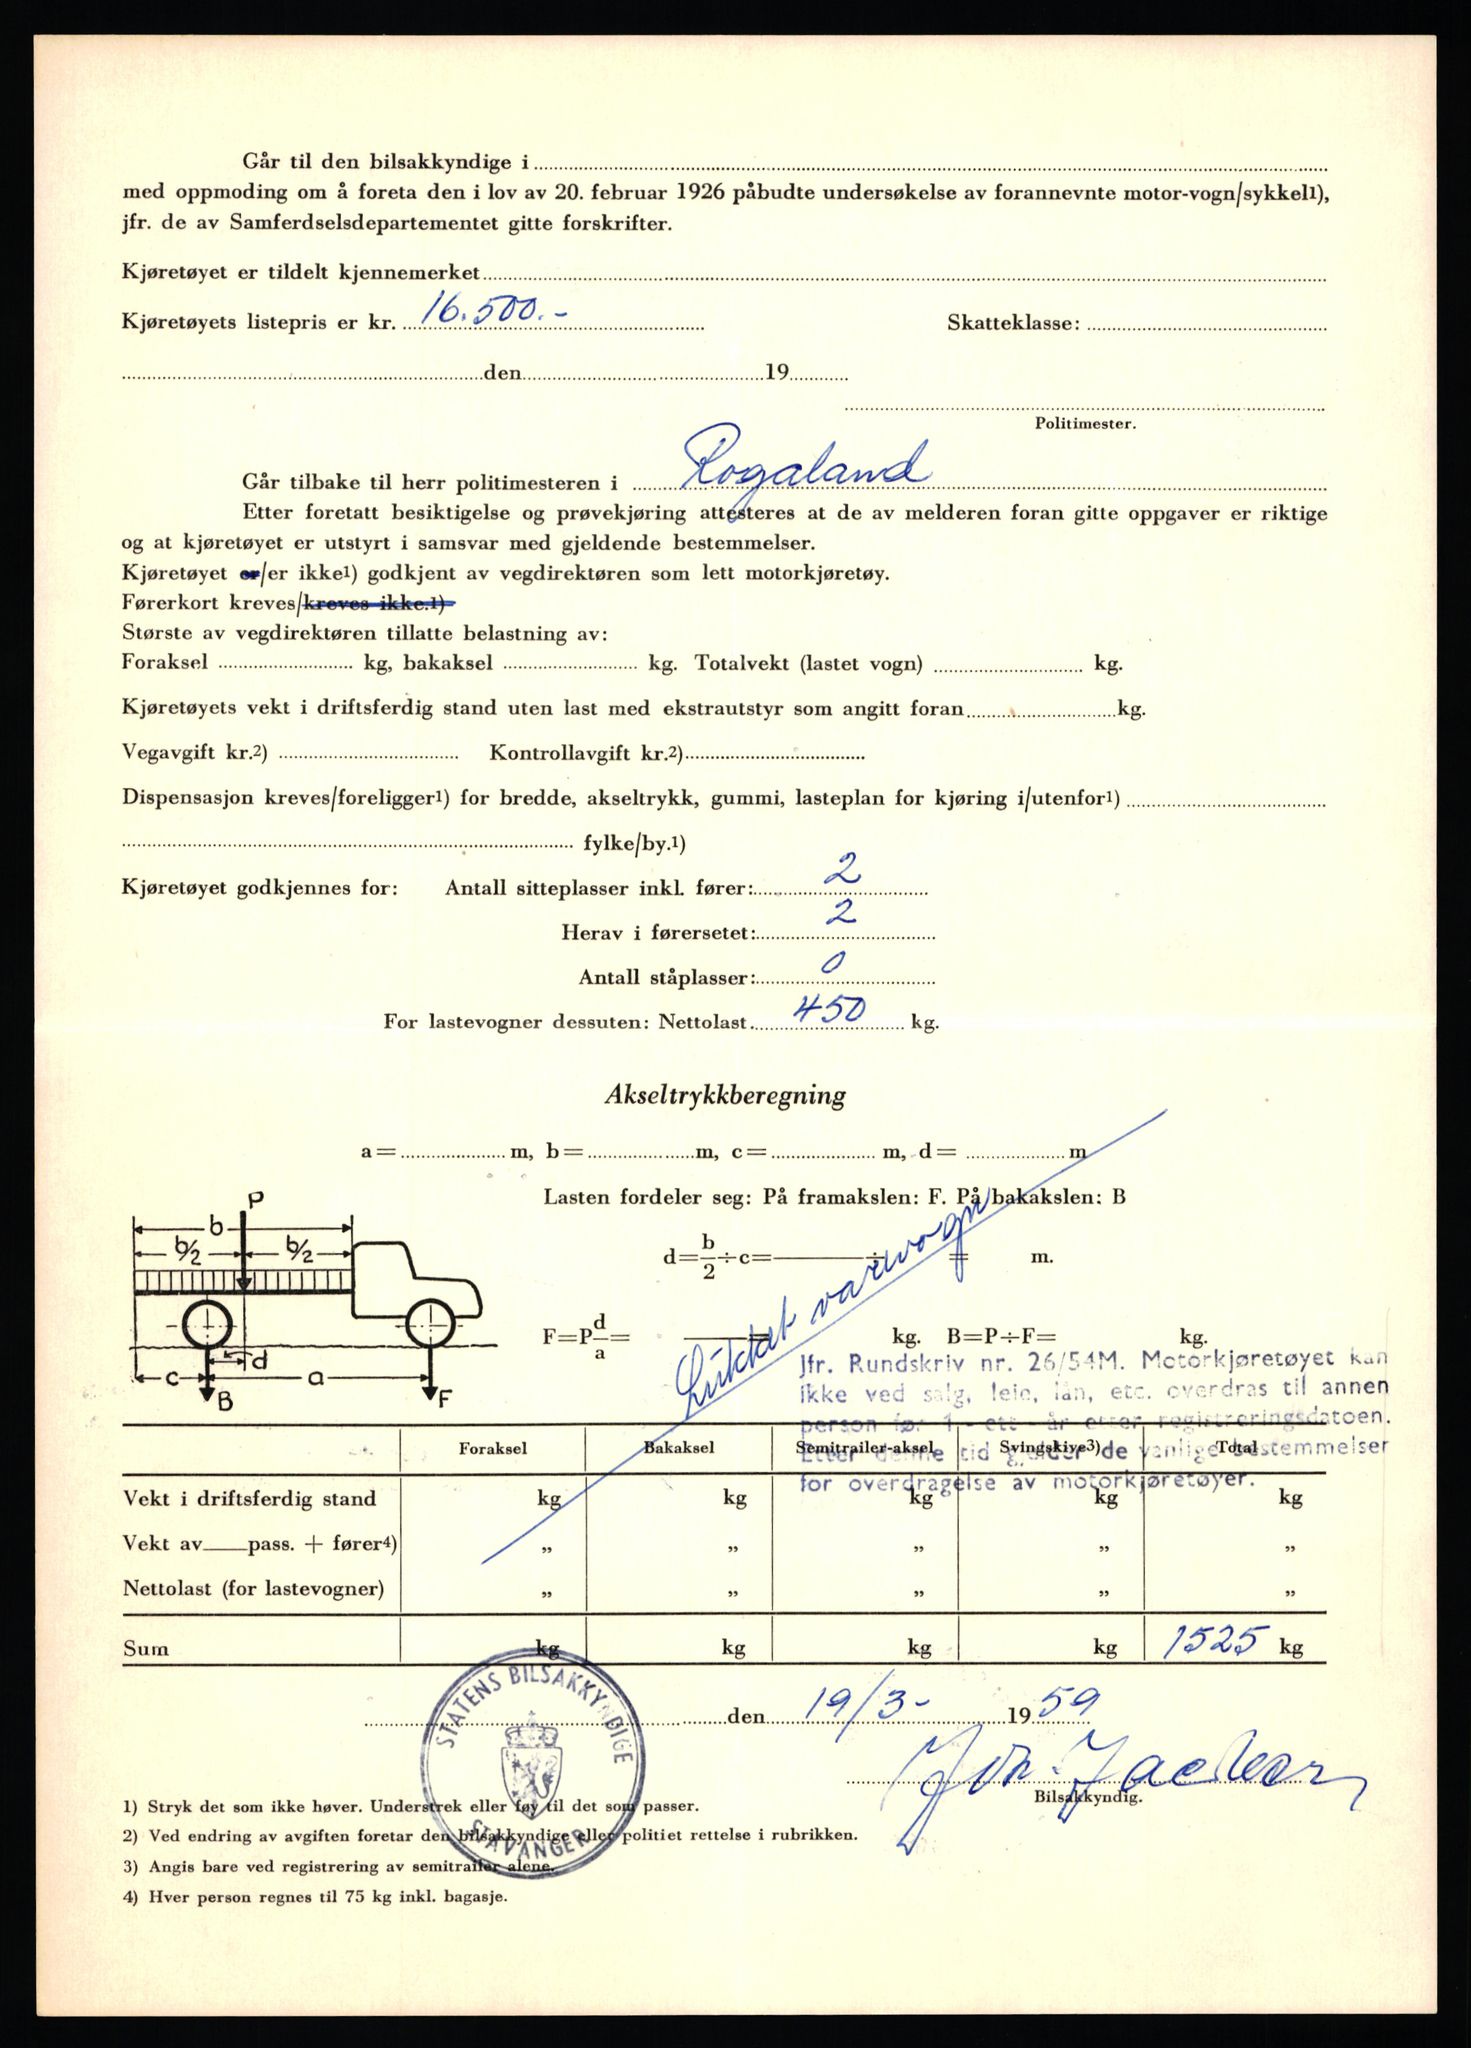 Går til den bilsakkyndige i
med oppmoding om å foreta den i lov av 20. februar 1926 påbudte undersøkelse av forannevnte motor-vogn/sykkel1),
jfr. de av Samferdselsdepartementet gitte forskrifter.
Kjøretøyet er tildelt kjennemerket
Kjøretøyets listepris er kr. 16.500.- Skatteklasse:
den 19
Politimester.
Går tilbake til herr politimesteren i Rogaland
Etter foretatt besiktigelse og prøvekjøring attesteres at de av melderen foran gitte oppgaver er riktige
og at kjøretøyet er utstyrt i samsvar med gjeldende bestemmelser.
Kjøretøyet er/er ikke1) godkjent av vegdirektøren som lett motorkjøretøy.
Førerkort kreves/kreves ikke.1)
Største av vegdirektøren tillatte belastning av:
Foraksel kg, bakaksel kg. Totalvekt (lastet vogn) kg.
Kjøretøyets vekt i driftsferdig stand uten last med ekstrautstyr som angitt foran kg.
Vegavgift kr.2) Kontrollavgift kr.2)
Dispensasjon kreves/foreligger1) for bredde, akseltrykk, gummi, lasteplan for kjøring i/utenfor1)
fylke/by.1)
Kjøretøyet godkjennes for: Antall sitteplasser inkl. fører: 2
Herav i førersetet: 2
Antall ståplasser: 0
For lastevogner dessuten: Nettolast 450 kg.
Akseltrykkberegning
a= m, b= m, c= m, d= m
Lasten fordeler seg: På framakslen: F. På bakakslen: B
P
b
b/2 b/2
d=b/2÷c= ÷ = m.
F=Pd/a= = kg. B=P÷F= kg.
c d a
B F
Lukket varevogn
Jfr. Rundskriv nr. 26/54M. Motorkjøretøyet kan
ikke ved salg, leie, lån, etc. overdras til annen
person før 1 - ett - år etter registreringsdatoen.
Etter denne tid gjelder de vanlige bestemmelser
for overdragelse av motorkjøretøyer.
Foraksel Bakaksel Semitrailer-aksel Svingskive3) Total
Vekt i driftsferdig stand kg kg kg kg kg
Vekt av pass. + fører4) „ „ „ „ „
Nettolast (for lastevogner) „ „ „ „ „
Sum kg kg kg kg 1525 kg
den 19/3- 1959
Bilsakkyndig.
STATENS BILSAKKYNDIGE
STAVANGER
1) Stryk det som ikke høver. Understrek eller føy til det som passer.
2) Ved endring av avgiften foretar den bilsakkyndige eller politiet rettelse i rubrikken.
3) Angis bare ved registrering av semitrailer alene.
4) Hver person regnes til 75 kg inkl. bagasje.